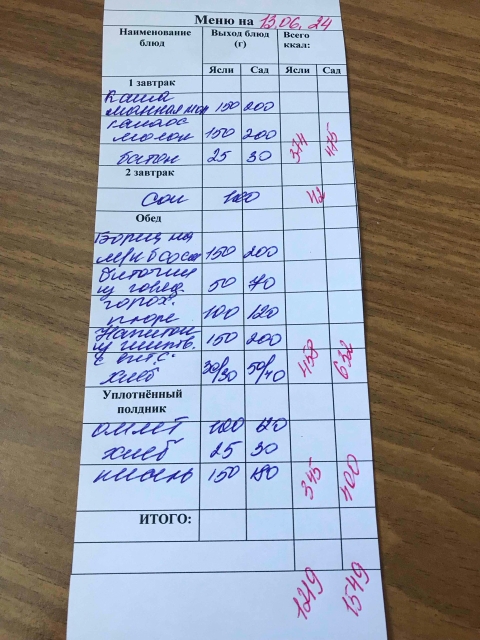 Меню на 13.06.24
Наименование блюд Выход блюд (г) Всего ккал:
Ясли Сад Ясли Сад
1 завтрак
Каша
манная мол 150 200
какао с
молок 150 200
батон 25 30 374 475
2 завтрак
Сок 100 42
Обед
Борщ на
м/к б со см 150 200
Биточки
из говяд. 50 70
горох.
пюре 100 120
Напиток
из шипов. 150 200
с вит. С.
хлеб 30/30 50/40 458 632
Уплотнённый
полдник
омлет 100 120
хлеб 25 30
кисель 150 180 345 400
ИТОГО:
1219 1549